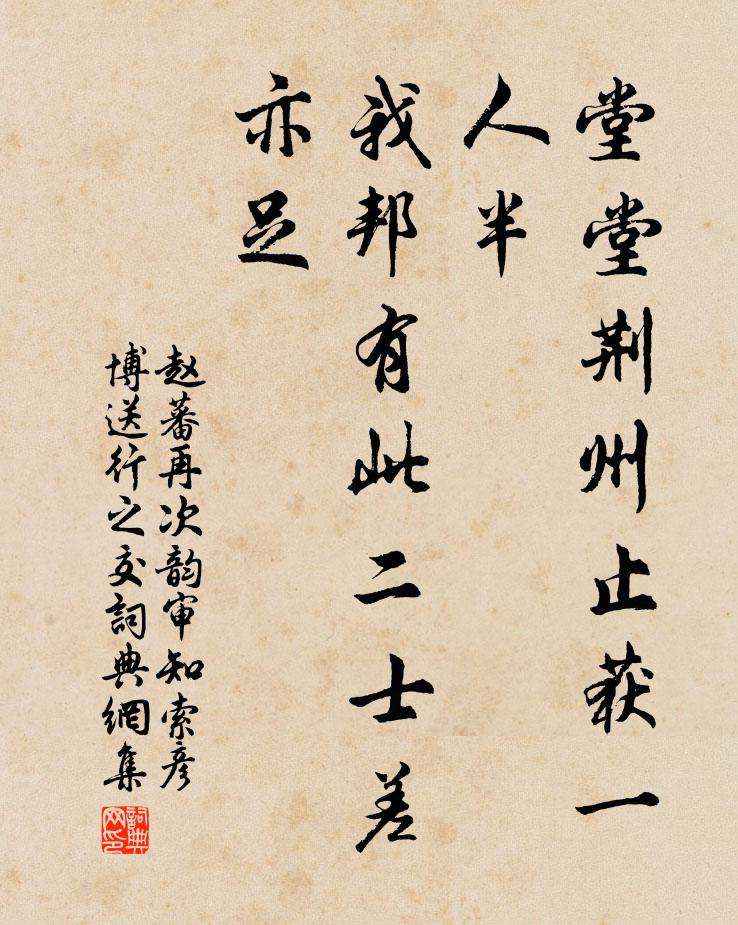 堂堂荆州止获一
人半
我邦有此二士差
亦足
赵蕃再次韵审知索彦
博送行之交詞典網集
詞典网印